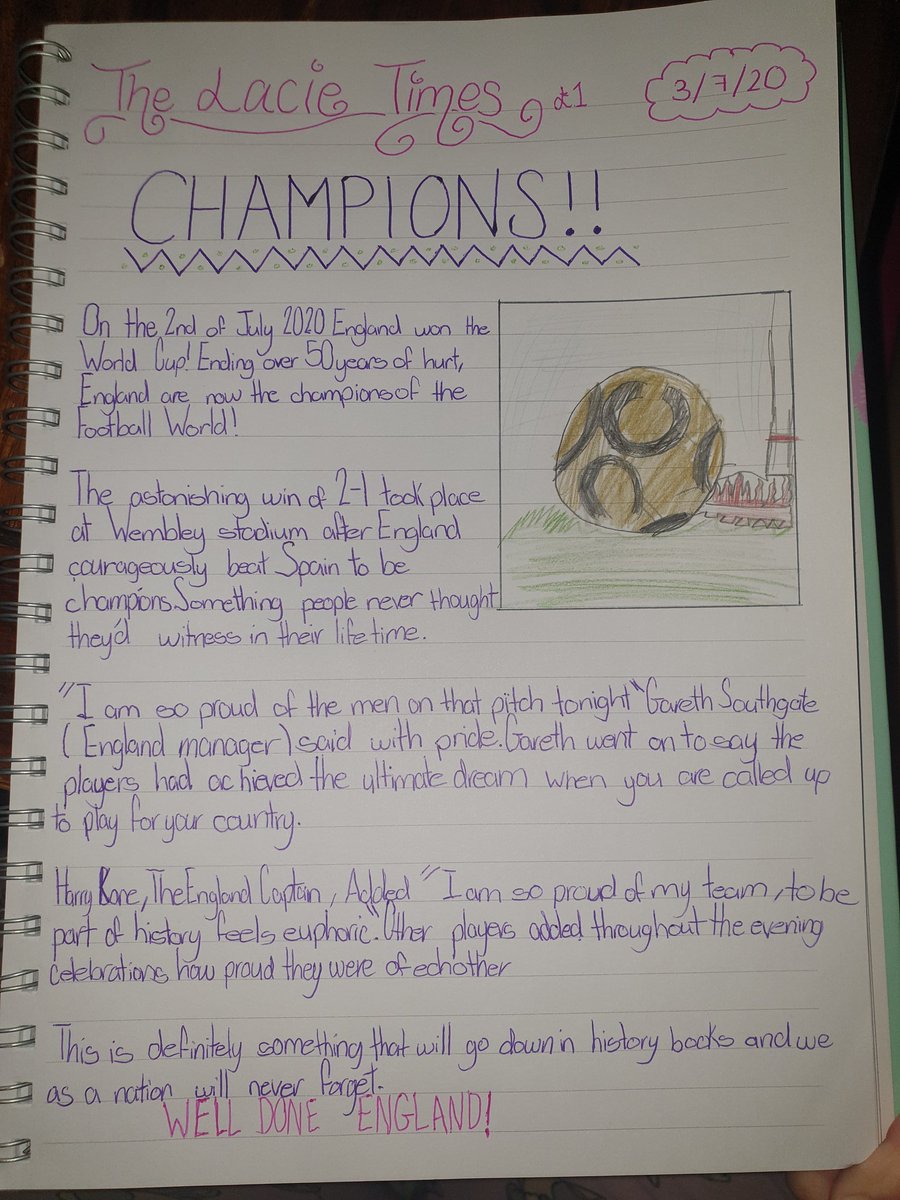 The Lacie Times £1
3/7/20
CHAMPIONS!!
On the 2nd of July 2020 England won the
World Cup! Ending over 50 years of hurt,
England are now the champions of the
Football World!
The astonishing win of 2-1 took place
at Wembley stadium after England
courageously beat Spain to be
champions. Something people never thought
they'd witness in their life time.
"I am so proud of the men on that pitch tonight" Gareth Southgate
(England manager) said with pride. Gareth went on to say the
players had achieved the ultimate dream when you are called up
to play for your country.
Harry Kane, The England Captain, Added "I am so proud of my team, to be
part of history feels euphoric". Other players added throughout the evening
celebrations, how proud they were of echother
This is definitely something that will go down in history books and we
as a nation will never forget.
WELL DONE ENGLAND!